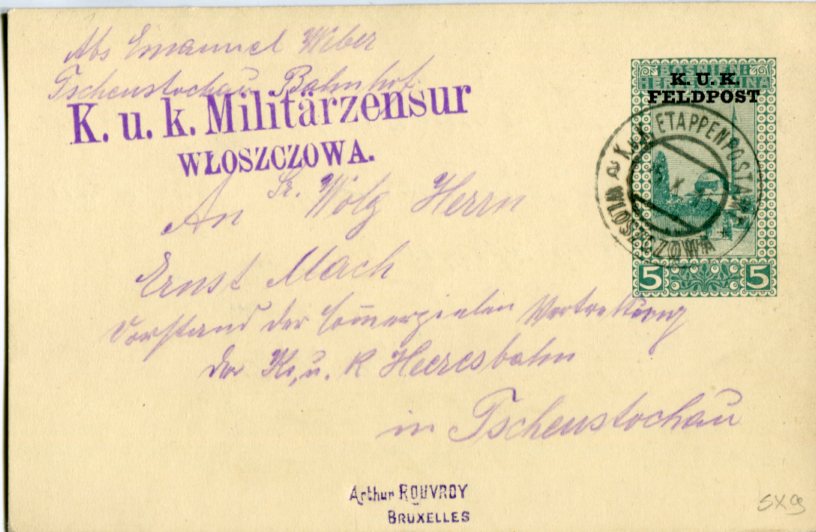 Abs Emanuel Weber
Tschenstochau Bahnhof.
K. u. k. Militärzensur
WŁOSZCZOWA.
BOSNIEN
HERCEGOVINA
K. U. K.
FELDPOST
K.u.K. ETAPPENPOSTAMT
WŁOSZCZOWA
X
5 5
An Sr. Wolg Herrn
Ernst Mach
Vorstand der Commerzielen Vertrettung
der K. u. K Heeresbahn
in Tschenstochau
Arthur ROUVROY
BRUXELLES